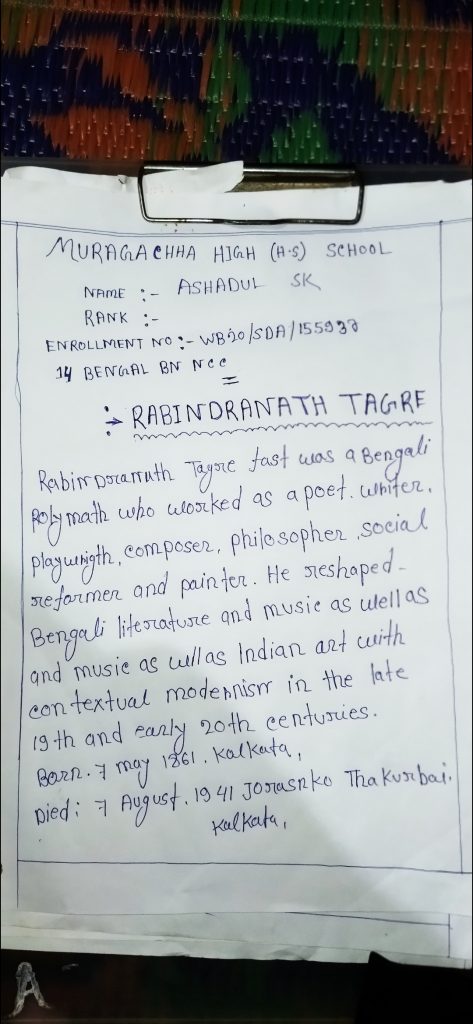 MURAGACHHA HIGH (H.S) SCHOOL
NAME :- ASHADUL SK
RANK :-
ENROLLMENT NO :- WB20/SDA/155937
14 BENGAL BN NCC
RABINDRANATH TAGRE
Rabindranath Tagore fast was a Bengali
Polymath who worked as a poet. writer,
playwrigth, composer, philosopher, social
reformer and painter. He reshaped-
Bengali literature and music as well as
and music as wllas Indian art with
contextual modernism in the late
19th and early 20th centuries.
Born. 7 may 1861. Kalkata,
Died: 7 August. 1941 Jorasnko Thakurbai.
Kalkata,
A